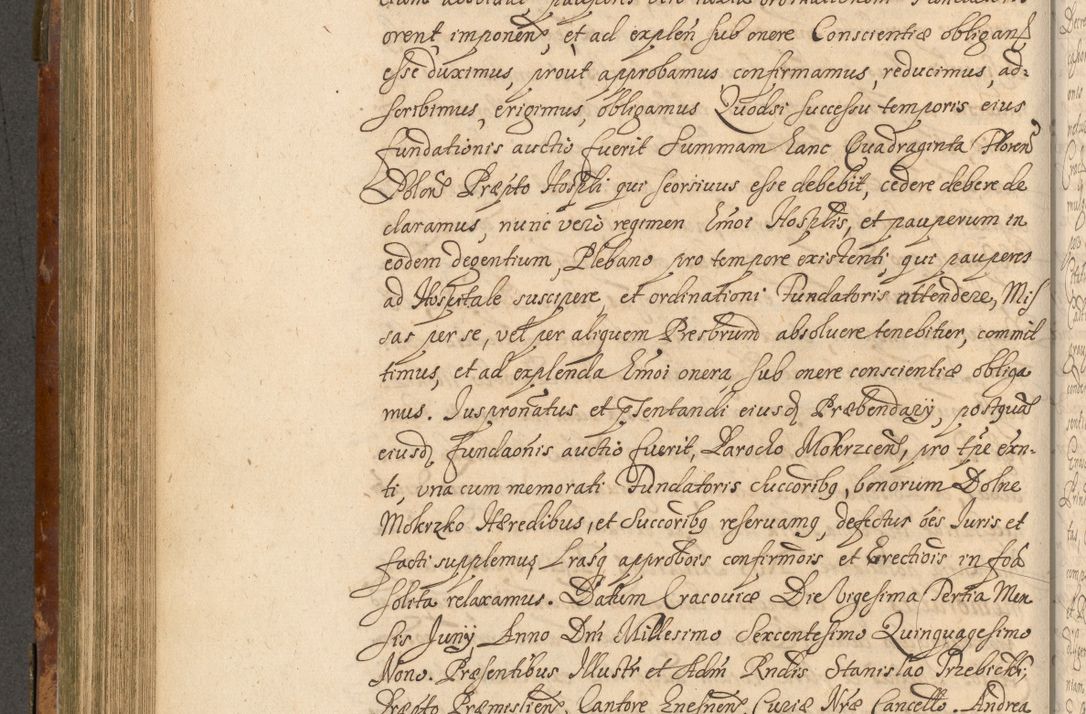 orent imponen, et ad explen sub onere Conscientiæ obligans
esse duximus, prout approbamus confirmamus, reducimus, ad-
scribimus, erigimus, obligamus Quodsi successu temporis eius
fundationis auctio fuerit Summam hanc Quadraginta Floren
Polon Præpto Hospli qui seorsivus esse debebit, cedere debere de
claramus, nunc verò regimen Emoi Hosplis, et pauperum in
eodem degentium, Plebano pro tempore existenti, qui pauperes
ad Hospitale suscipere, et ordinationi Fundatoris attendere, Mis
sas per se, vel per aliquem Presbrum absoluere tenebitur, commit
timus, et ad explenda Emoi onera sub onere conscientiæ obliga
mus. Juspronatus et pÌsentandi eiusd Præbendarÿ, postqua
eiusd, fundaonis auctio fuerit, Parocho Mokrzcen, pro tpe exn-
ti, vna cum memorati Fundatoris Succoribq, bonorum Dolne
Mokrzko Hæredibus, et Succoribq reseruamq, defectus oes Juris et
facti supplemus, Lrasq approbois confirmois et Erectiois in foa
solita relaxamus. Datum Cracoviæ Die Vigesima Tertia Men
sis Junÿ, Anno Dni Millesimo Sexcentesimo Quinquagesimo
Nono. Præsentibus Illustr et Adm Rndis Stanislao Przebicki,
Præpto Præmislien, Cantore Gnesnen, Curiæ Nræ Cancello. Andrea